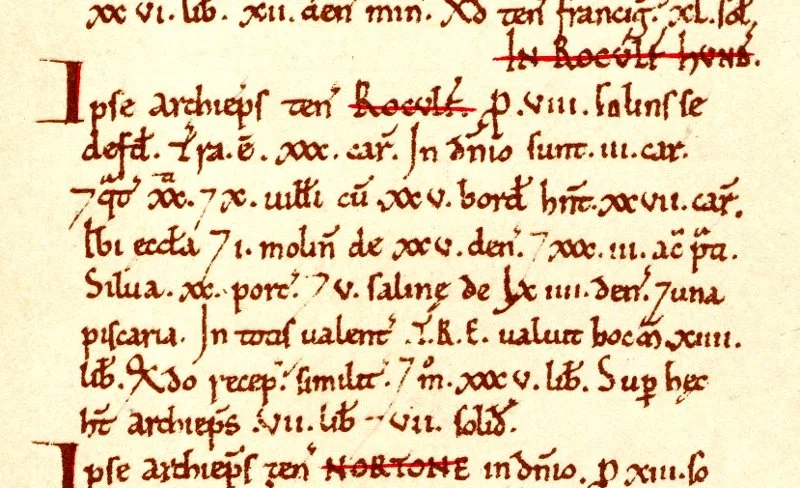 xx vi. lib. xii. den min. Qdo ten francig. xl. sol.
IN ROCVLF HVND.
Ipse archieps ten ROCVLF. p. viii. solins se
defd. Tra. ē. xxx. car. In dnio sunt. iii. car.
⁊ qt xx. ⁊ x. uilli cū xxv. bord hnt. xxvii. car.
Ibi eccla ⁊ i. molin de xxv. den. ⁊ xxx. iii. ac pti.
Silua. xx. porc. ⁊ v. saline de lx iiii. den. ⁊ una
piscaria. In totis ualent T.R.E. ualuit hoc m xiiii.
lib. Qdo recep. similit. ⁊ m. xxxv. lib. Sup hęc
ht archieps vii. lib ⁊ vii. solid.
Ipse archieps ten NORTONE in dnio. p xiii. so